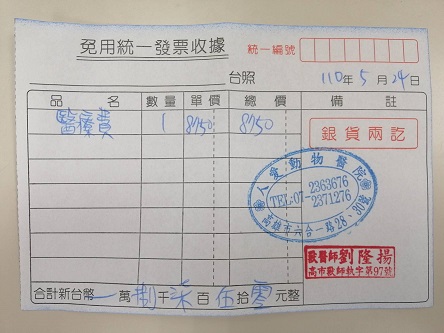 免用統一發票收據
統一編號
台照 110年5月24日
品名 數量 單價 總價 備註
醫療費 1 8750 8750
銀貨兩訖
人愛動物醫院
TEL:07-2363676
2371276
高雄市六合一路28-30號
獸醫師劉隆揚
高市獸師執字第97號
合計新台幣 萬捌千柒百伍拾零元整